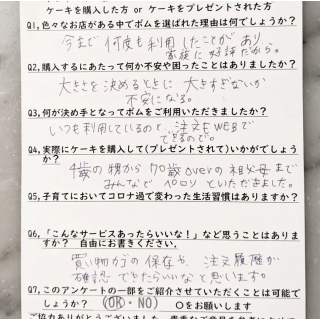 ケーキを購入した方 or ケーキをプレゼントされた方
Q1,色々なお店がある中でポムを選ばれた理由は何でしょうか?
今まで何度も利用したことがあり、
家族に好評だから。
Q2,購入するにあたって何か不安や困ったことはありましたか?
大きさを決めるときに 大きすぎないか
不安になる。
Q3,何が決め手となってポムをご利用いただきましたか?
いつも利用しているのと、注文もWEBで
できるので。
Q4,実際にケーキを購入して(プレゼントされて)いかがでしょう
か?
4歳の甥から70歳overの祖父母まで
みんなでペロリといただきました。
Q5,子育てにおいてコロナ過で変わった生活習慣はありますか?
Q6,「こんなサービスあったらいいな!」など思うことはありま
すか? 自由にお書きください。
買い物カゴの保存や、注文履歴が
確認できたらいいなと思います。
Q7,このアンケートの一部をご紹介させていただくことは可能で
しょうか? (OK・NO) 〇をお願いします
ご協力ありがとうございました。